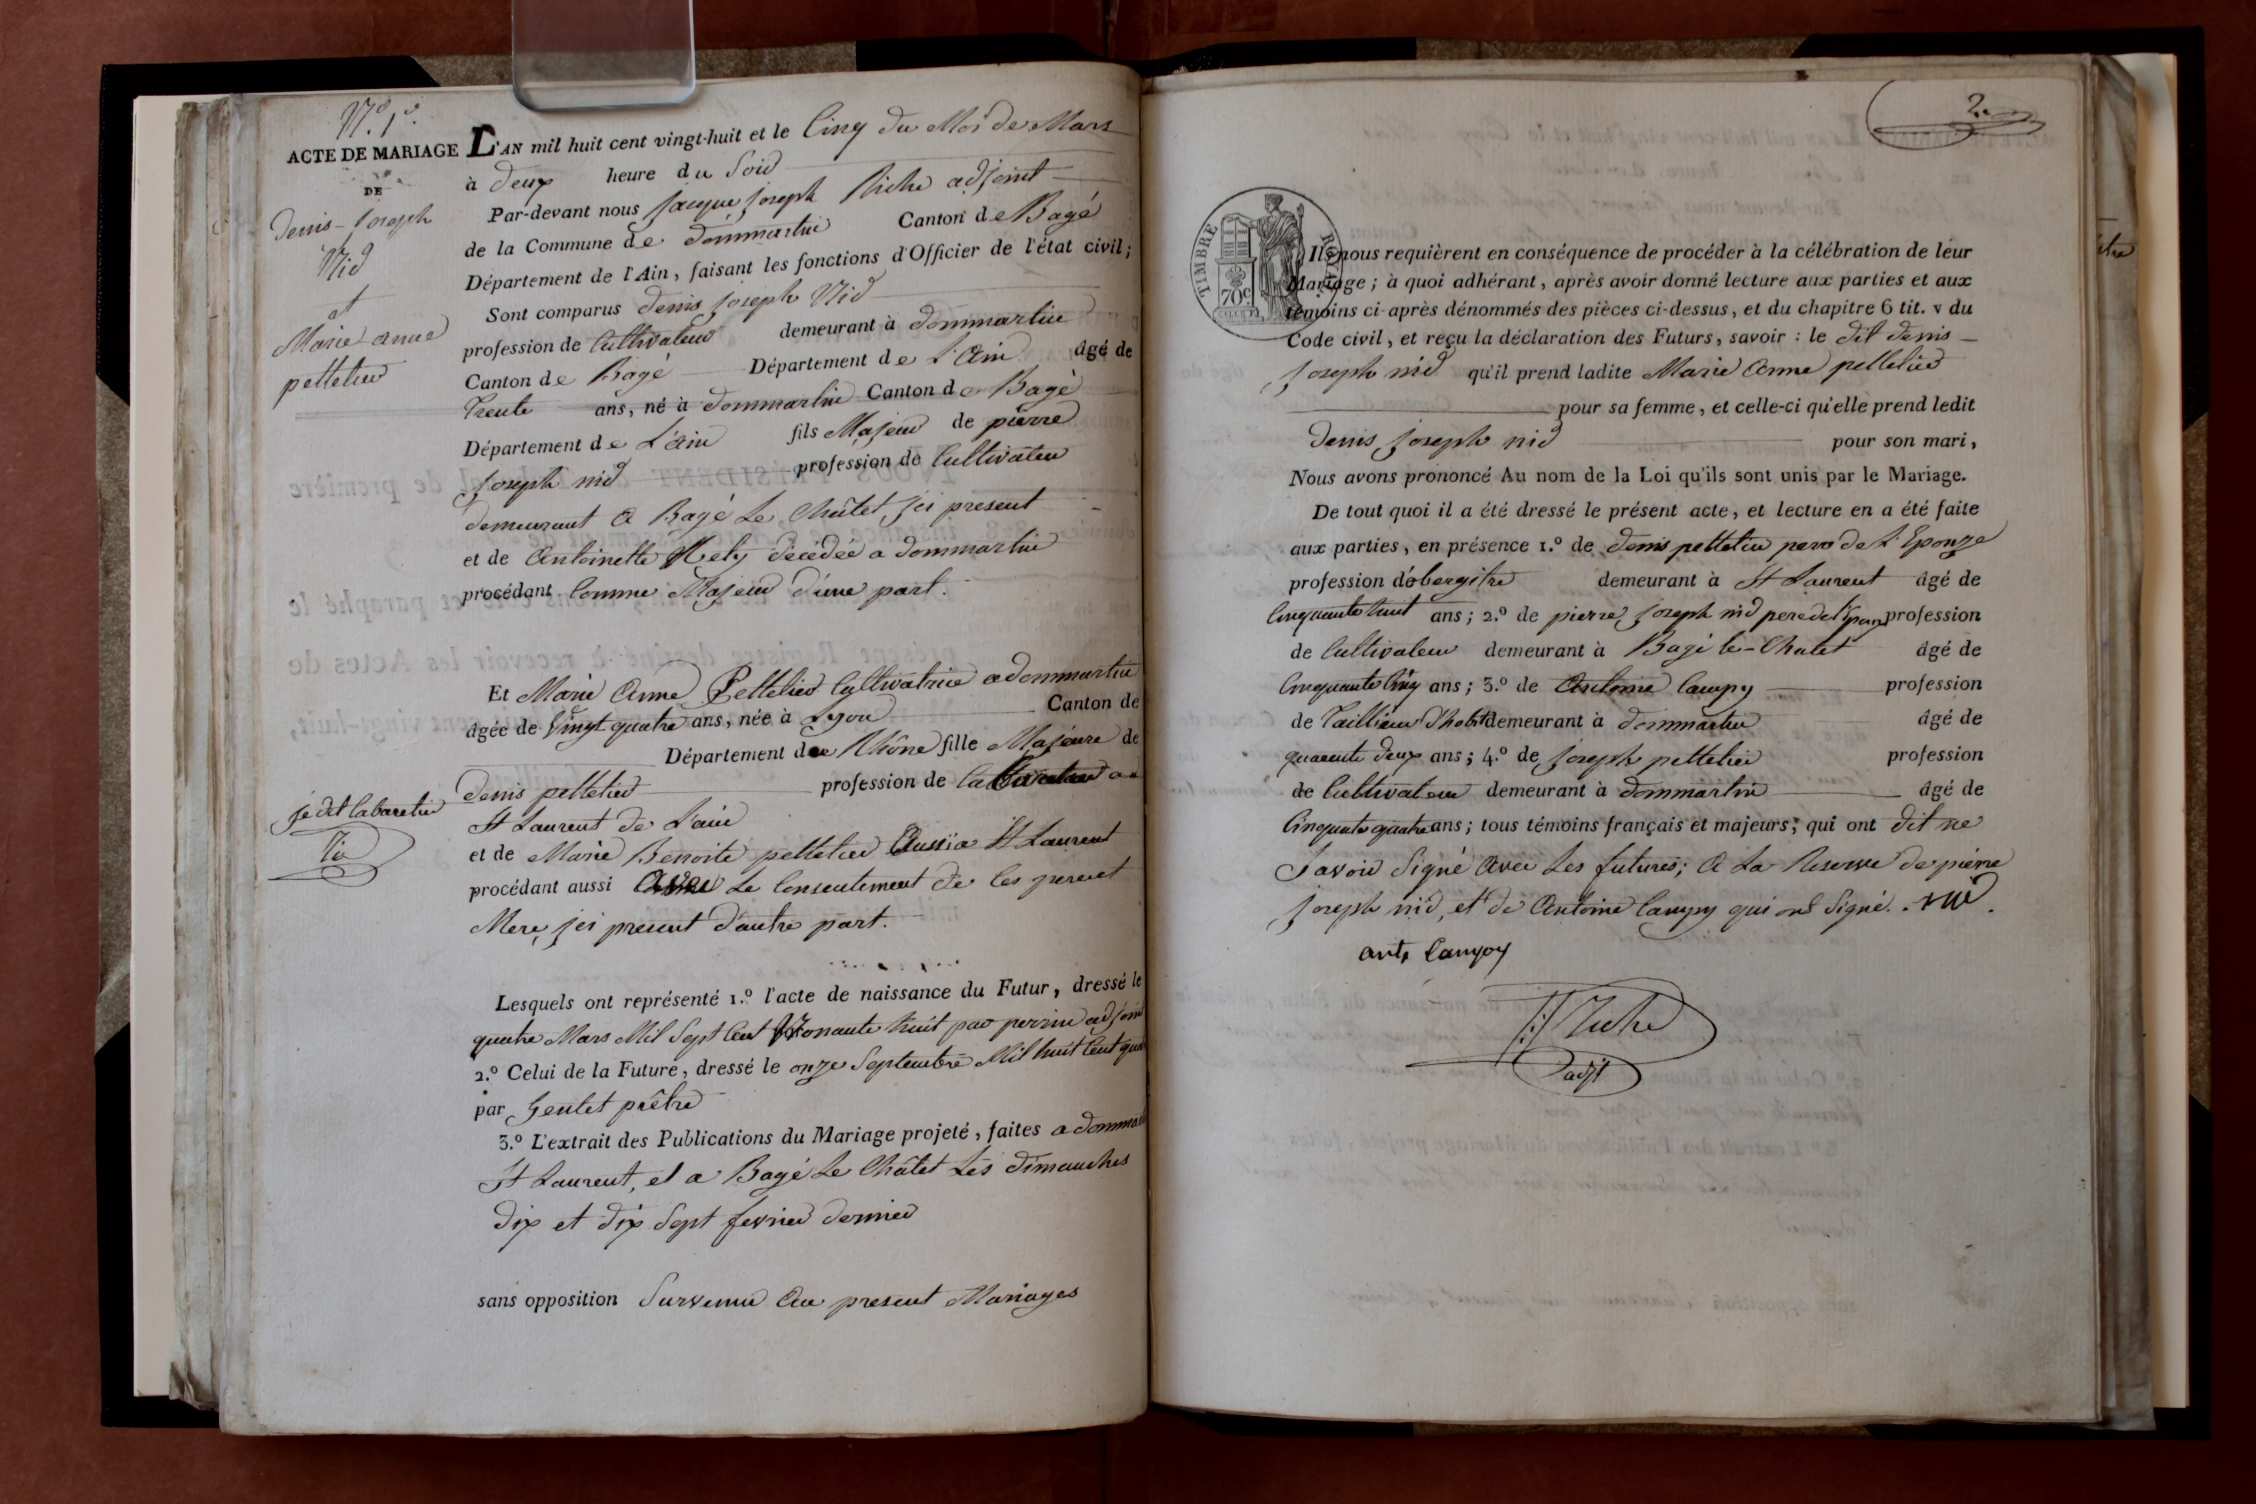 N.º 1.º
ACTE DE MARIAGE
DE
Denis-Joseph
Nid
et
Marie anne
pelletier
L'AN mil huit cent vingt-huit et le Cinq du Mois de Mars
à deux heure du Soir
Par-devant nous Jacque Joseph Riche adjoint
de la Commune de dommartin Canton de Bagé
Département de l'Ain, faisant les fonctions d'Officier de l'état civil;
Sont comparus denis joseph Nid
profession de Cultivateur demeurant à dommartin
Canton de Bagé Département de L'Ain âgé de
Trente ans, né à dommartin Canton de Bagé
Département de L'ain fils Majeur de pierre
Joseph nid profession de Cultivateur
demeurant a Bagé Le Châtet, jci present
et de Antoinette décédée a dommartin
procédant Comme Majeur d'une part.
Et Marie Anne Pelletier Cultivatrice a dommartin
âgée de Vingt quatre ans, née à Lyon Canton de
Département de Rhône fille Majeure de
denis pelletier profession de
je dit Cabaretier
St Laurent de L'ain
et de Marie Benoite pelletier Aussi a St Laurent
procédant aussi Avec Le Consentement de Ces pere et
Mere, jci present d'autre part.
Lesquels ont représenté 1.º l'acte de naissance du Futur, dressé le
quatre Mars Mil Sept Cent huit par perrin adjoint
2.º Celui de la Future, dressé le onze Septembre Mil huit Cent
par Gentet prêtre
3.º L'extrait des Publications du Mariage projeté, faites a
St Laurent, et a Bagé Le Châtet Les dimanches
dix et dix Sept fevrier dernier
sans opposition Survenue Au present Mariages
2.
TIMBRE ROYAL
70c
Ils nous requièrent en conséquence de procéder à la célébration de leur
Mariage; à quoi adhérant, après avoir donné lecture aux parties et aux
témoins ci-après dénommés des pièces ci-dessus, et du chapitre 6 tit. v du
Code civil, et reçu la déclaration des Futurs, savoir: le dit denis
joseph nid qu'il prend ladite Marie Anne pelletier
pour sa femme, et celle-ci qu'elle prend ledit
denis joseph nid pour son mari,
Nous avons prononcé Au nom de la Loi qu'ils sont unis par le Mariage.
De tout quoi il a été dressé le présent acte, et lecture en a été faite
aux parties, en présence 1.º de denis pelletier pere de L'Eponze
profession d'obergitre demeurant à St Laurent âgé de
Cinquante huit ans; 2.º de pierre joseph nid pere de profession
de Cultivateur demeurant à Bagé le-Chatet âgé de
Cinquante Cinq ans; 3.º de Antoine Campy profession
de Tailleur d'habit demeurant à dommartin âgé de
quarente deux ans; 4.º de joseph pelletier profession
de Cultivateur demeurant à dommartin âgé de
Cinquante quatre ans; tous témoins français et majeurs; qui ont dit ne
Savoir Signé Avec Les futures; A La Reserve de pierre
joseph nid, et de Antoine Campy qui ont Signé. nid
ant. Campy
Riche
adjt